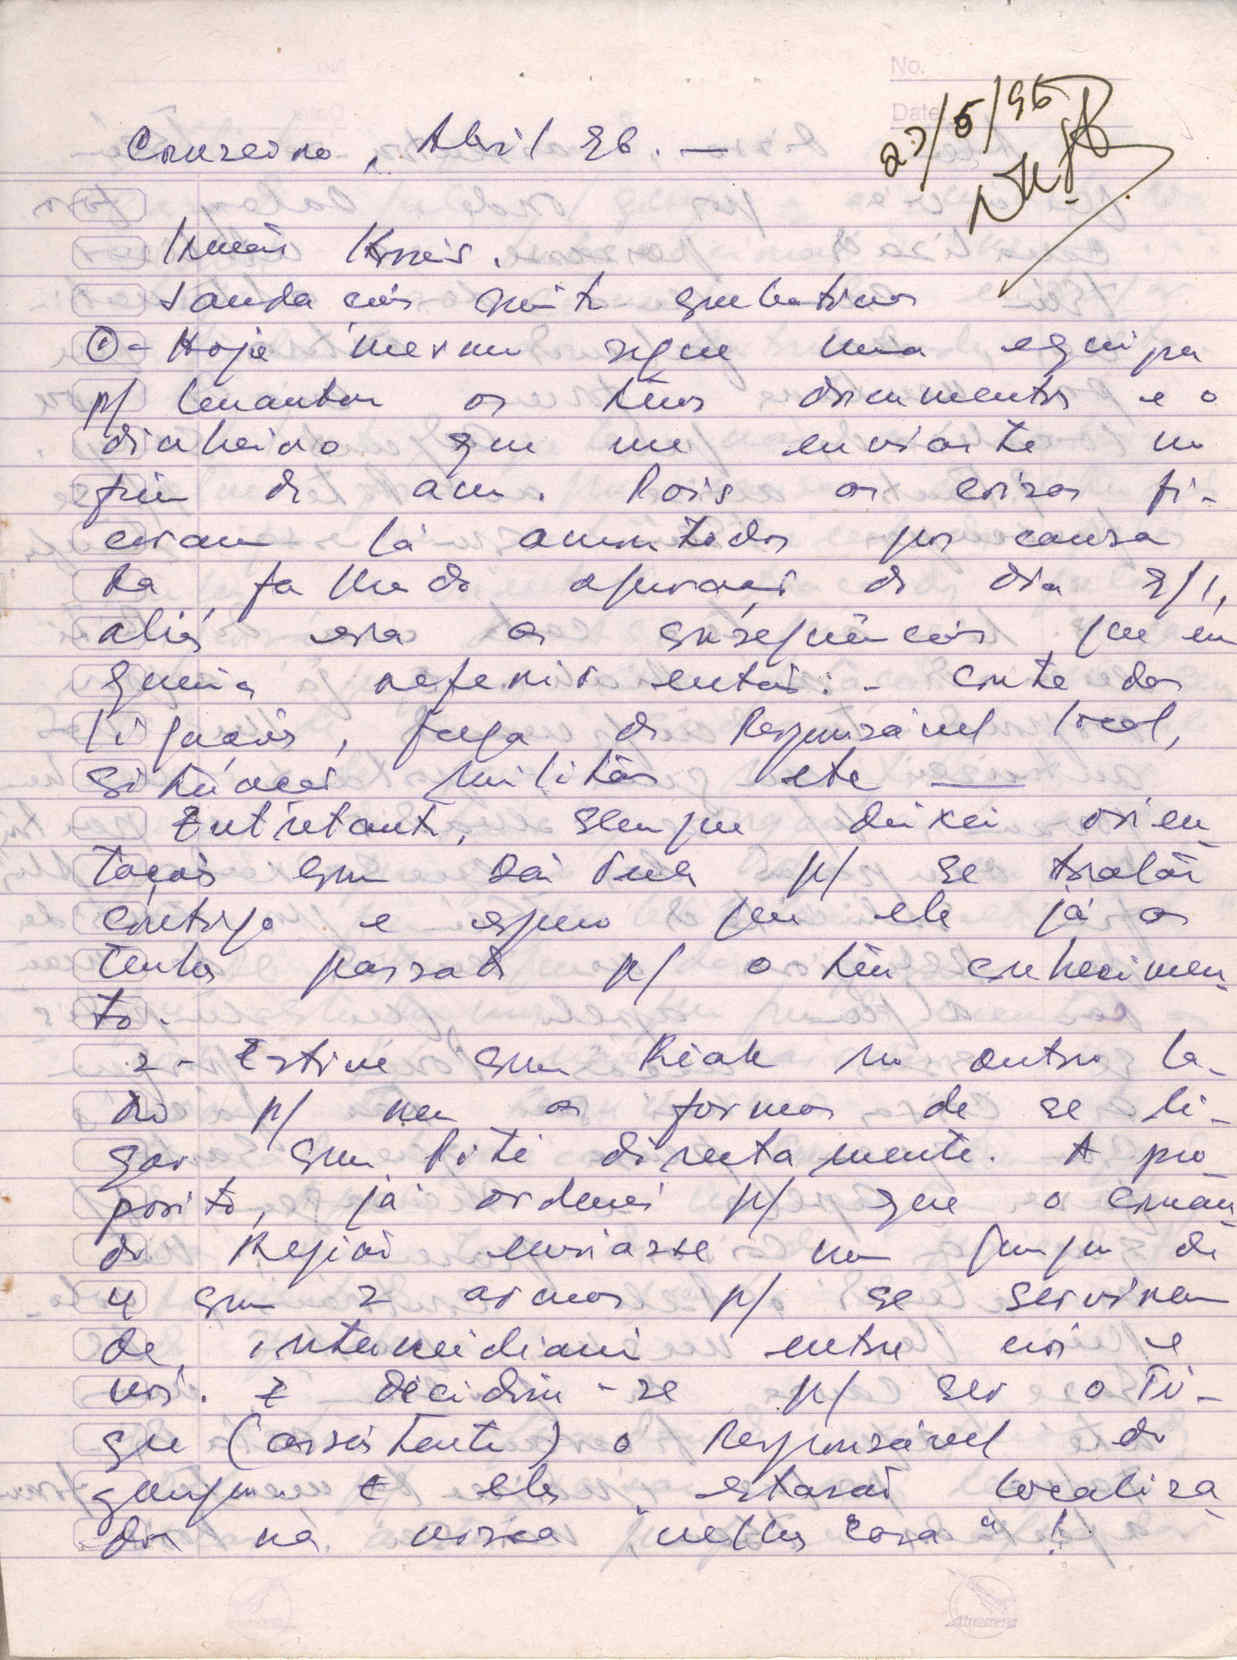 No.
Date
23/5/96
Cruzeiro, Abril 96. —
Irmão Konis.
Saudações muito combativas
1- Hoje mesmo segue uma equipa
p/ levantar os teus documentos e o
dinheiro que me enviaste no
fim do ano. Pois as coisas fi-
caram lá amontoados por causa
da falhada operação do dia 9/1,
aliás era as consequências que eu
queria referir então: - corte das
ligações, fuga do Responsável local,
situação militar etc —
Entretanto, sempre deixei orien-
tações com Daí Tula p/ se tratar
contigo e espero que ele já os
tenha passado p/ o teu conhecimen-
to.
2- Estive com Reak no outro la-
do p/ ver as formas de se li-
gar com Piti directamente. A pro-
posito, já ordenei p/ que o coman-
do Região enviasse um grupo de
4 com 2 armas p/ se servirem
de intermediario entre nós e
vós. E decidiu-se p/ ser o Ti-
gue (assistente) o Responsável do
grupo e eles estarão localiza-
dos na nossa "velha casa"!